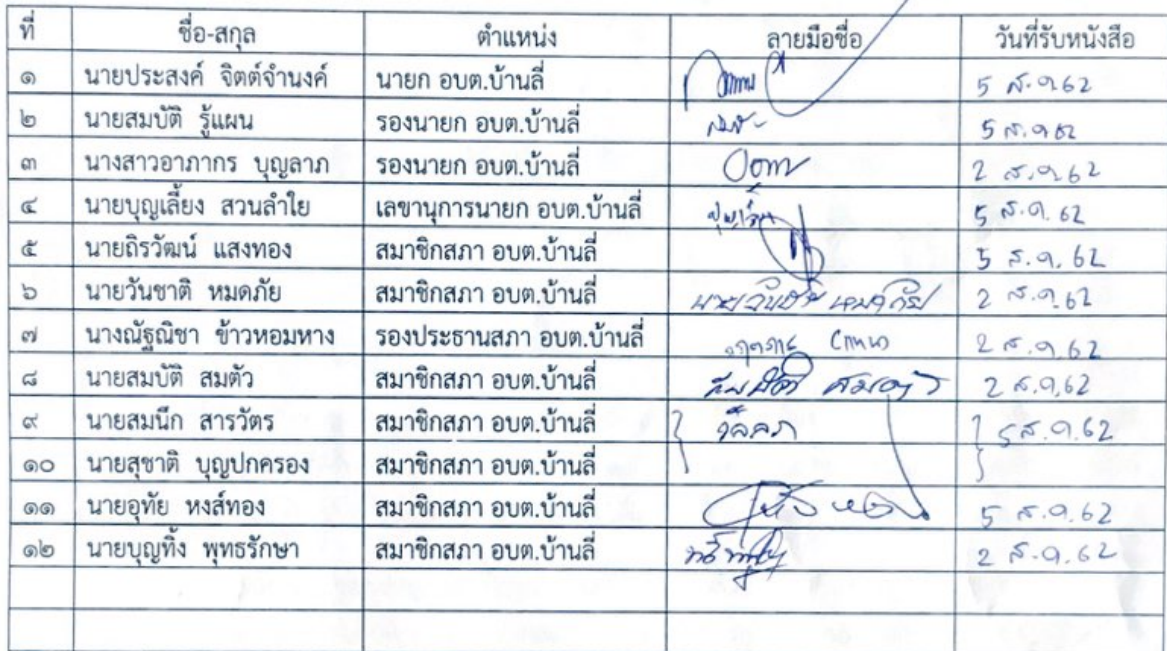 ที่ ชื่อ-สกุล ตำแหน่ง ลายมือชื่อ วันที่รับหนังสือ
๑ นายประสงค์ จิตต์จำนงค์ นายก อบต.บ้านลี่ 5 ส.ค.62
๒ นายสมบัติ รู้แผน รองนายก อบต.บ้านลี่ 5 ส.ค.62
๓ นางสาวอาภากร บุญลาภ รองนายก อบต.บ้านลี่ 2 ส.ค.62
๔ นายบุญเลี้ยง สวนลำใย เลขานุการนายก อบต.บ้านลี่ 5 ส.ค.62
๕ นายถิรวัฒน์ แสงทอง สมาชิกสภา อบต.บ้านลี่ 5 ส.ค.62
๖ นายวันชาติ หมดภัย สมาชิกสภา อบต.บ้านลี่ นายวันชาติ หมดภัย 2 ส.ค.62
๗ นางณัฐณิชา ข้าวหอมหาง รองประธานสภา อบต.บ้านลี่ 2 ส.ค.62
๘ นายสมบัติ สมตัว สมาชิกสภา อบต.บ้านลี่ สมบัติ สมตัว 2 ส.ค.62
๙ นายสมนึก สารวัตร สมาชิกสภา อบต.บ้านลี่ 5 ส.ค.62
๑๐ นายสุชาติ บุญปกครอง สมาชิกสภา อบต.บ้านลี่
๑๑ นายอุทัย หงส์ทอง สมาชิกสภา อบต.บ้านลี่ 5 ส.ค.62
๑๒ นายบุญทิ้ง พุทธรักษา สมาชิกสภา อบต.บ้านลี่ 2 ส.ค.62